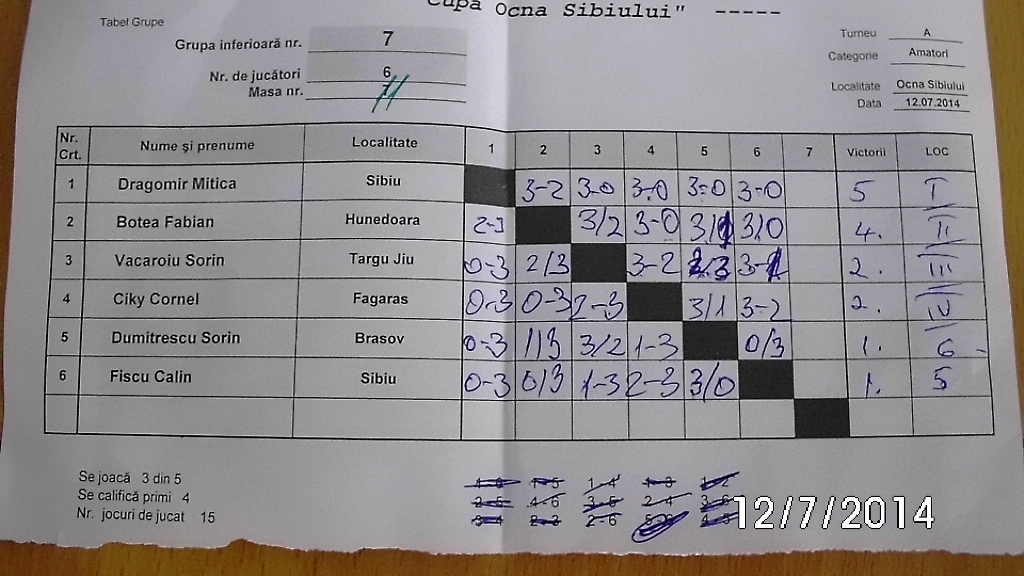 "Cupa Ocna Sibiului" -----
Tabel Grupe
Grupa inferioară nr. 7
Nr. de jucători 6
Masa nr. 11
Turneu A
Categorie Amatori
Localitate Ocna Sibiului
Data 12.07.2014
Nr. Crt. Nume şi prenume Localitate 1 2 3 4 5 6 7 Victorii LOC
1 Dragomir Mitica Sibiu 3-2 3-0 3-0 3-0 3-0 5 I
2 Botea Fabian Hunedoara 2-3 3/2 3-0 3/1 3/0 4. II
3 Vacaroiu Sorin Targu Jiu 0-3 2/3 3-2 2-3 3-1 2. III
4 Ciky Cornel Fagaras 0-3 0-3 2-3 3/1 3-2 2. IV
5 Dumitrescu Sorin Brasov 0-3 1/3 3/2 1-3 0/3 1. 6
6 Fiscu Calin Sibiu 0-3 0/3 1-3 2-3 3/0 1. 5
Se joacă 3 din 5
Se califică primi 4
Nr. jocuri de jucat 15
1-5 1-4
4-6 3-5 2-4 3-6
3-4 2-3 2-6
12/7/2014